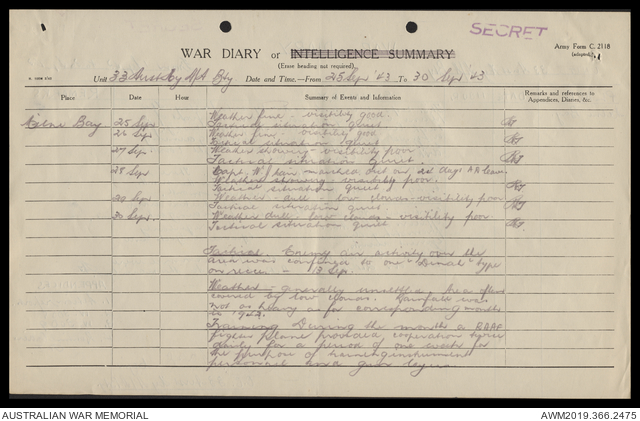 SECRET
WAR DIARY or INTELLIGENCE SUMMARY
Army Form C. 2118
(adapted)
(Erase heading not required)
Unit 33 Aust Hy AA Bty Date and Time—From 25 Sept '43 To 30 Sept 43
Place Date Hour Summary of Events and Information Remarks and references to Appendices, Diaries, &c.
Milne Bay 25 Sept Weather fine - visibility good.
Tactical situation quiet
26 Sept Weather fine - visibility good
Tactical situation quiet
27 Sept. Weather showery - visibility poor
Tactical situation quiet.
28 Sept Capt. W. marched out on
Weather showery visibility poor.
Tactical situation quiet
29 Sept Weather - dull - low clouds - visibility poor
Tactical situation quiet.
30 Sept. Weather dull low clouds - visibility poor
Tactical situation quiet
Tactical. Enemy air activity over the
area was confined to one "Dinah" type
on recce. - 13 Sep.
Weather - generally unsettled. Area often
covered by low clouds. Rainfall was
not as heavy as for corresponding month
in 1942.
Training During the month a RAAF
fighter plane provided cooperation
daily for a period of one week for
the purpose of instrument
personnel and gun layers
AUSTRALIAN WAR MEMORIAL
AWM2019.366.2475